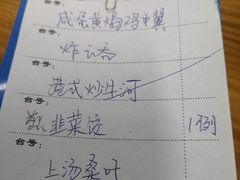 咸蛋黄焗鸡中翼
台号:
炸云吞
台号:
港式炒牛河
台号:
韭菜饺 1例
台号:
上汤桑叶